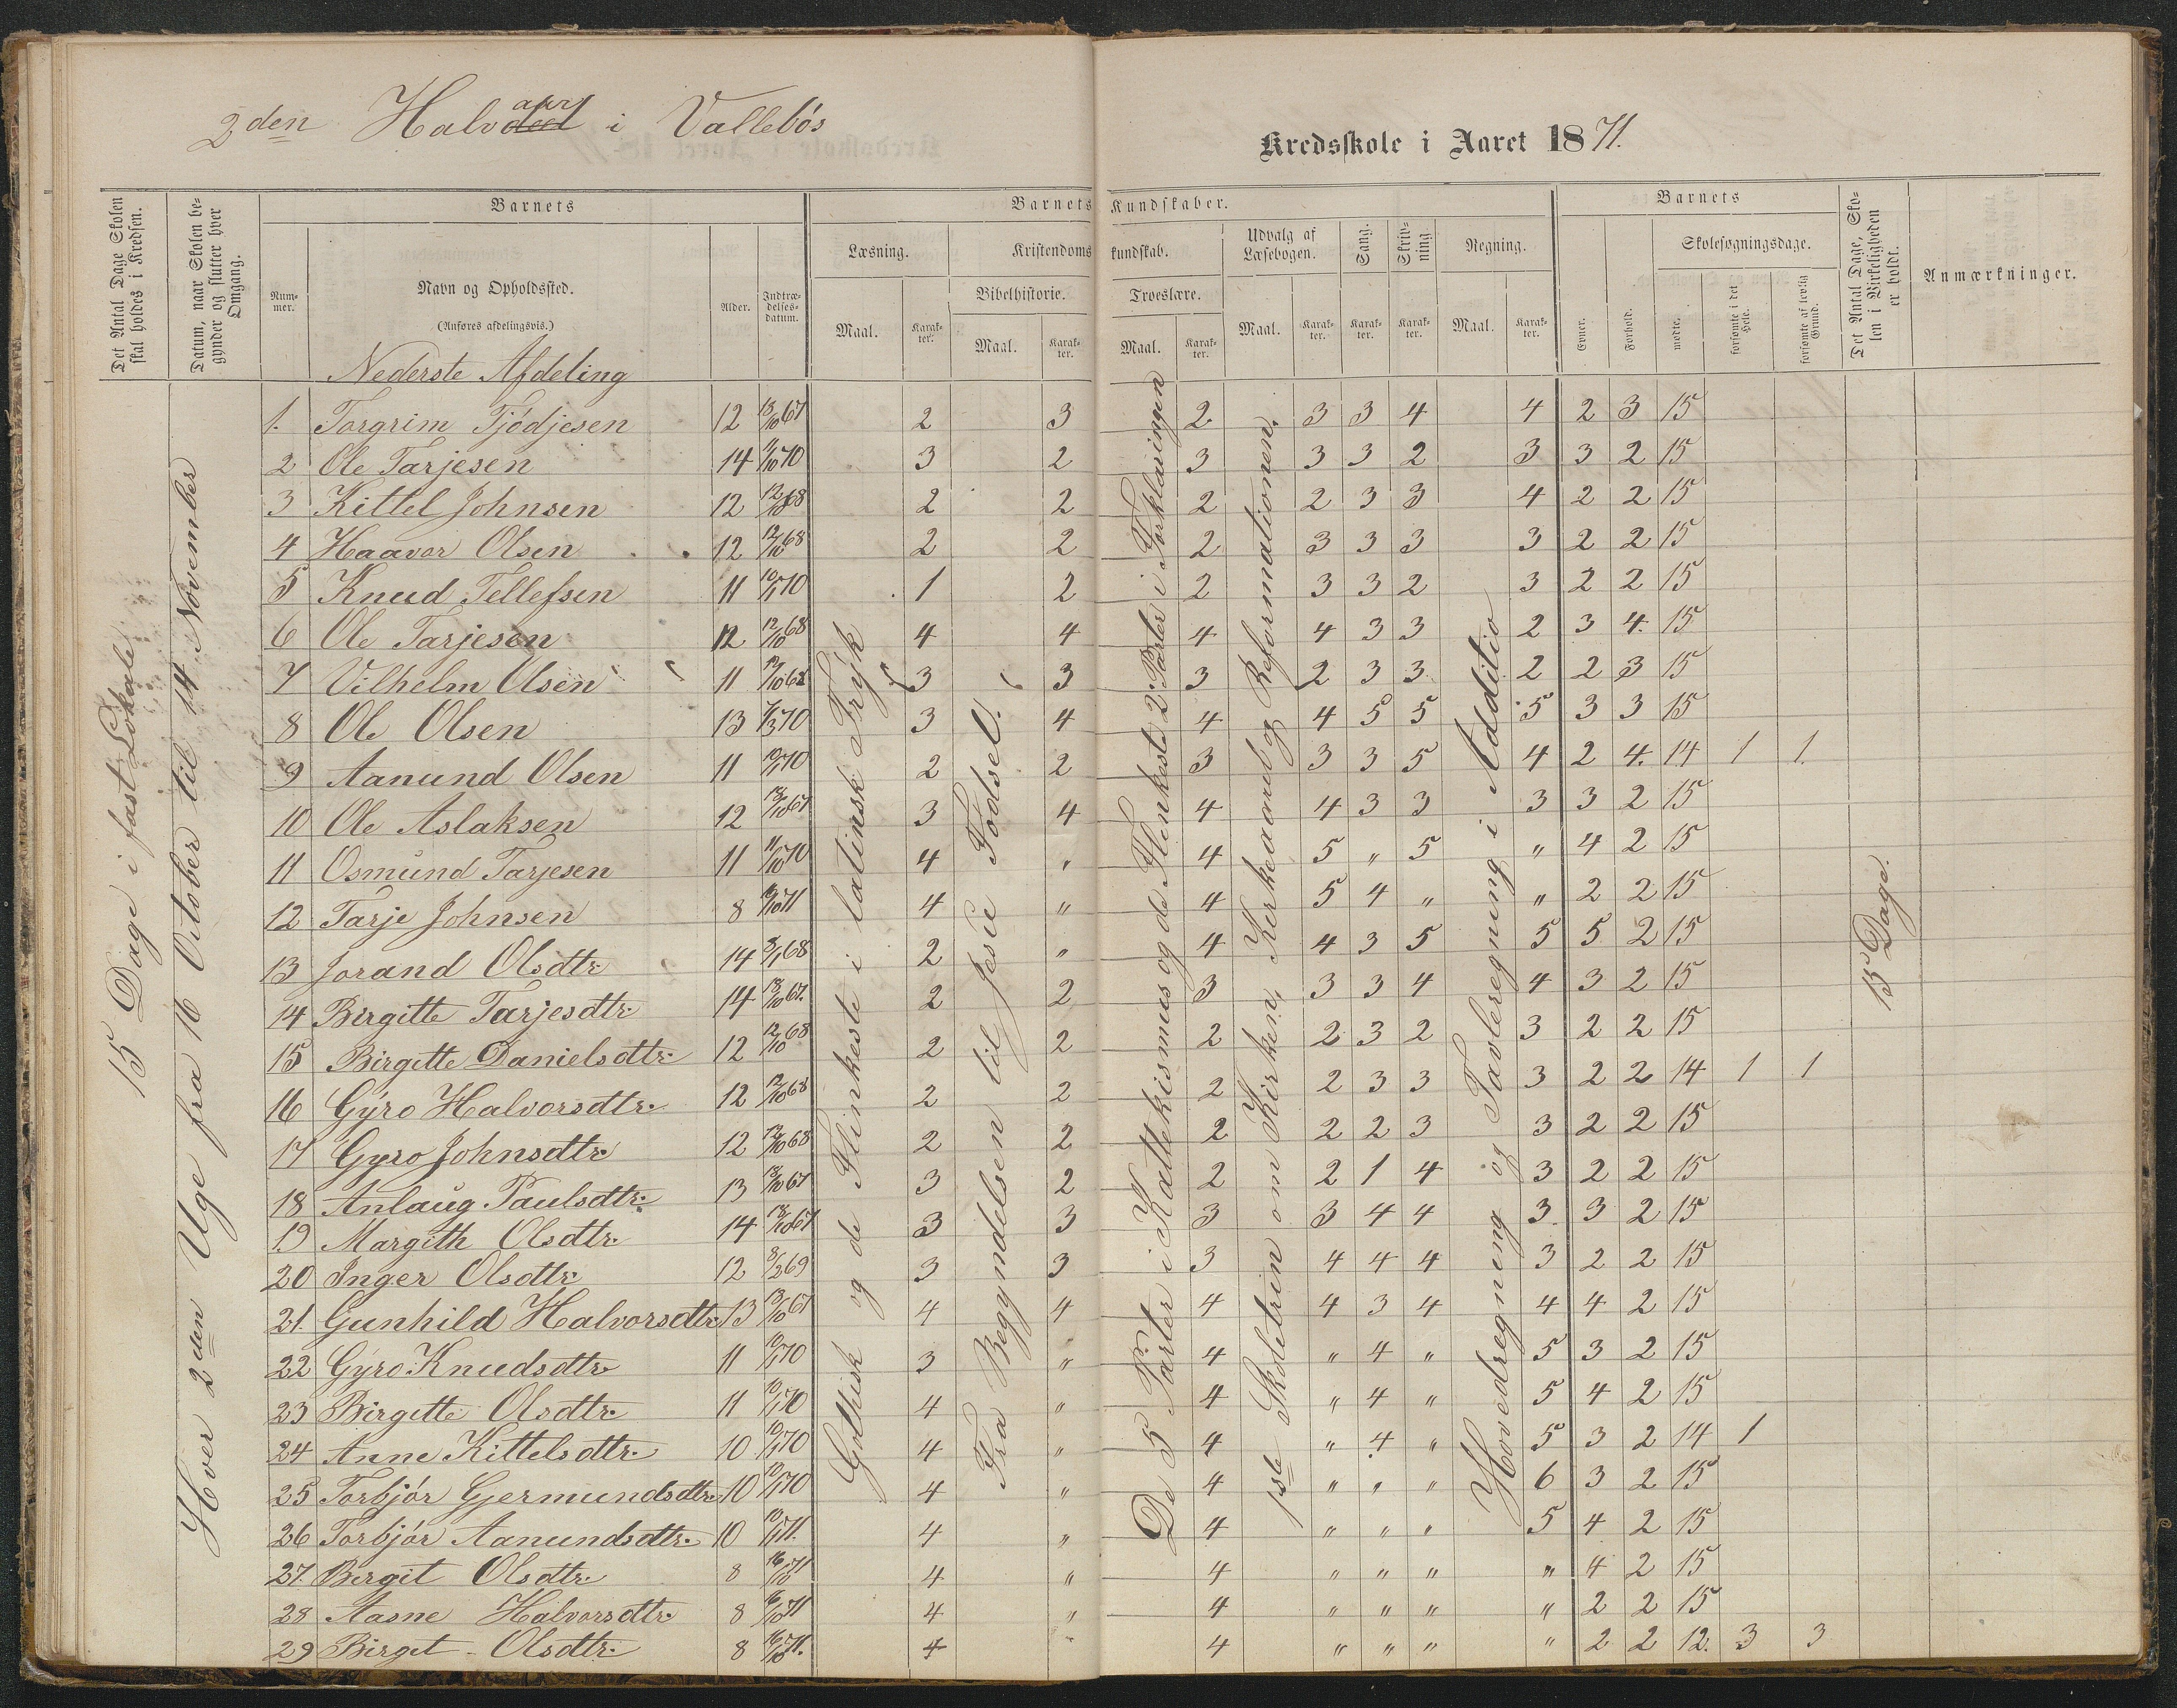 2den Halvdeel aar i Vallebös
Kredsskole i Aaret 1871.
Det Antal Dage Skolen skal holdes i Kredsen.
Datum, naar Skolen begynder og slutter hver Omgang.
Barnets
Num-mer.
Navn og Opholdssted.
(Anføres afdelingsvis.)
Alder.
Indtræ-delses-datum.
Barnets Kundskaber.
Læsning.
Maal.
Karak-ter.
Kristendomskundskab.
Bibelhistorie.
Maal.
Karak-ter.
Troeslære.
Maal.
Karak-ter.
Udvalg af Læsebogen.
Maal.
Karak-ter.
Sang.
Karak-ter.
Skriv-ning
Karak-ter.
Regning.
Maal.
Karak-ter.
Barnets
Evner.
Forhold.
Skolesøgningsdage.
mødte.
forsømte i det Hele.
forsømte af lovlig Grund.
Det Antal Dage, Skolen i Virkeligheden er holdt.
Anmærkninger.
15 Dage i fast Lokale
Hver 2den Uge fra 16 Octsber til 14 November
Gothisk og de Flinkeste i latinsk Tryk
Fra Begyndelsen til Jesu Fødsel.
De 5 Parter i Kattekismus og de Flinkeste 2 Parter i Forklaringen
1ste Skoletrin om Kirken, Kirkeaand og Reformationen.
Hovedregning og Tavleregning i Additio
15 Dage.
Nederste Afdeling
1. Torgrim Tjödjesen 12 13/10 67 2 3 2 3 3 4 4 2 3 15
2 Ole Tarjesen 14 11/10 70 3 2 3 3 3 2 3 3 2 15
3 Kittel Johnsen 12 12/10 68 2 2 2 2 3 3 4 2 2 15
4 Haavor Olsen 12 12/10 68 2 2 2 3 3 3 3 2 2 15
5 Knud Tellefsen 11 10/1 70 1 2 2 3 3 2 3 2 2 15
6 Ole Tarjesen 12 12/10 68 4 4 4 4 3 3 2 3 4. 15
7 Vilhelm Olsen 11 12/10 68 3 3 3 2 3 3 2 2 3 15
8 Ole Olsen 13 7/3 70 3 4 4 4 5 5 5 3 3 15
9 Aanund Olsen 11 10/1 70 2 2 3 3 3 5 4 2 4. 14 1 1
10 Ole Aslaksen 12 13/10 67 3 4 4 4 3 3 3 3 2 15
11 Osmund Tarjesen 11 11/10 70 4 " 4 5 " 5 " 4 2 15
12 Tarje Johnsen 8 16/10 71 4 " 4 5 4 " " 2 2 15
13 Jorand Olsdtr 14 8/1 68 2 " 4 4 3 5 5 5 2 15
14 Birgitte Tarjesdtr. 14 13/10 67. 2 2 3 3 3 4 4 3 2 15
15 Birgitte Danielsdtr. 12 12/10 68 2 2 2 2 3 2 3 2 2 15
16 Gyro Halvorsdtr. 12 12/10 68 2 2 2 2 3 3 3 2 2 14 1 1
17 Gyro Johnsdtr 12 12/10 68 2 2 2 2 2 3 3 2 2 15
18 Anlaug Paulsdtr. 13 13/10 67 3 2 2 2 1 4 3 2 2 15
19 Margith Olsdtr. 14 13/10 67 3 3 3 3 4 4 3 3 2 15
20 Inger Olsdtr. 12 8/2 69 3 3 3 4 4 4 3 2 2 15
21. Gunhild Halvorsdtr. 13 13/10 67 4 4 4 4 3 4 4 4 2 15
22 Gyro Knudsdtr 11 10/1 70 3 " 4 " 4 " 5 3 2 15
23 Birgitte Olsdtr. 11 10/1 70 4 " 4 " 4 " 5 4 2 15
24 Anne Kittelsdtr. 10 10/1 70 4 " 4 " 4 " 5 3 2 14 1
25 Torbjör Gjermundsdtr. 10 10/1 70 4 " 4 " " " 6 3 2 15
26 Torbjör Aanundsdtr. 10 10/1 71. 4 " 4 " " " 5 4 2 15
27. Bergit Olsdtr. 8 16/10 71 4 " 4 " " " " 4 2 15
28 Aasne Halvorsdtr. 8 16/10 71 4 " 4 " " " " 2 2 15
29 Birgit Olsdtr. 8 16/10 71. 4 " 4 " " " " 2 2 12. 3 3